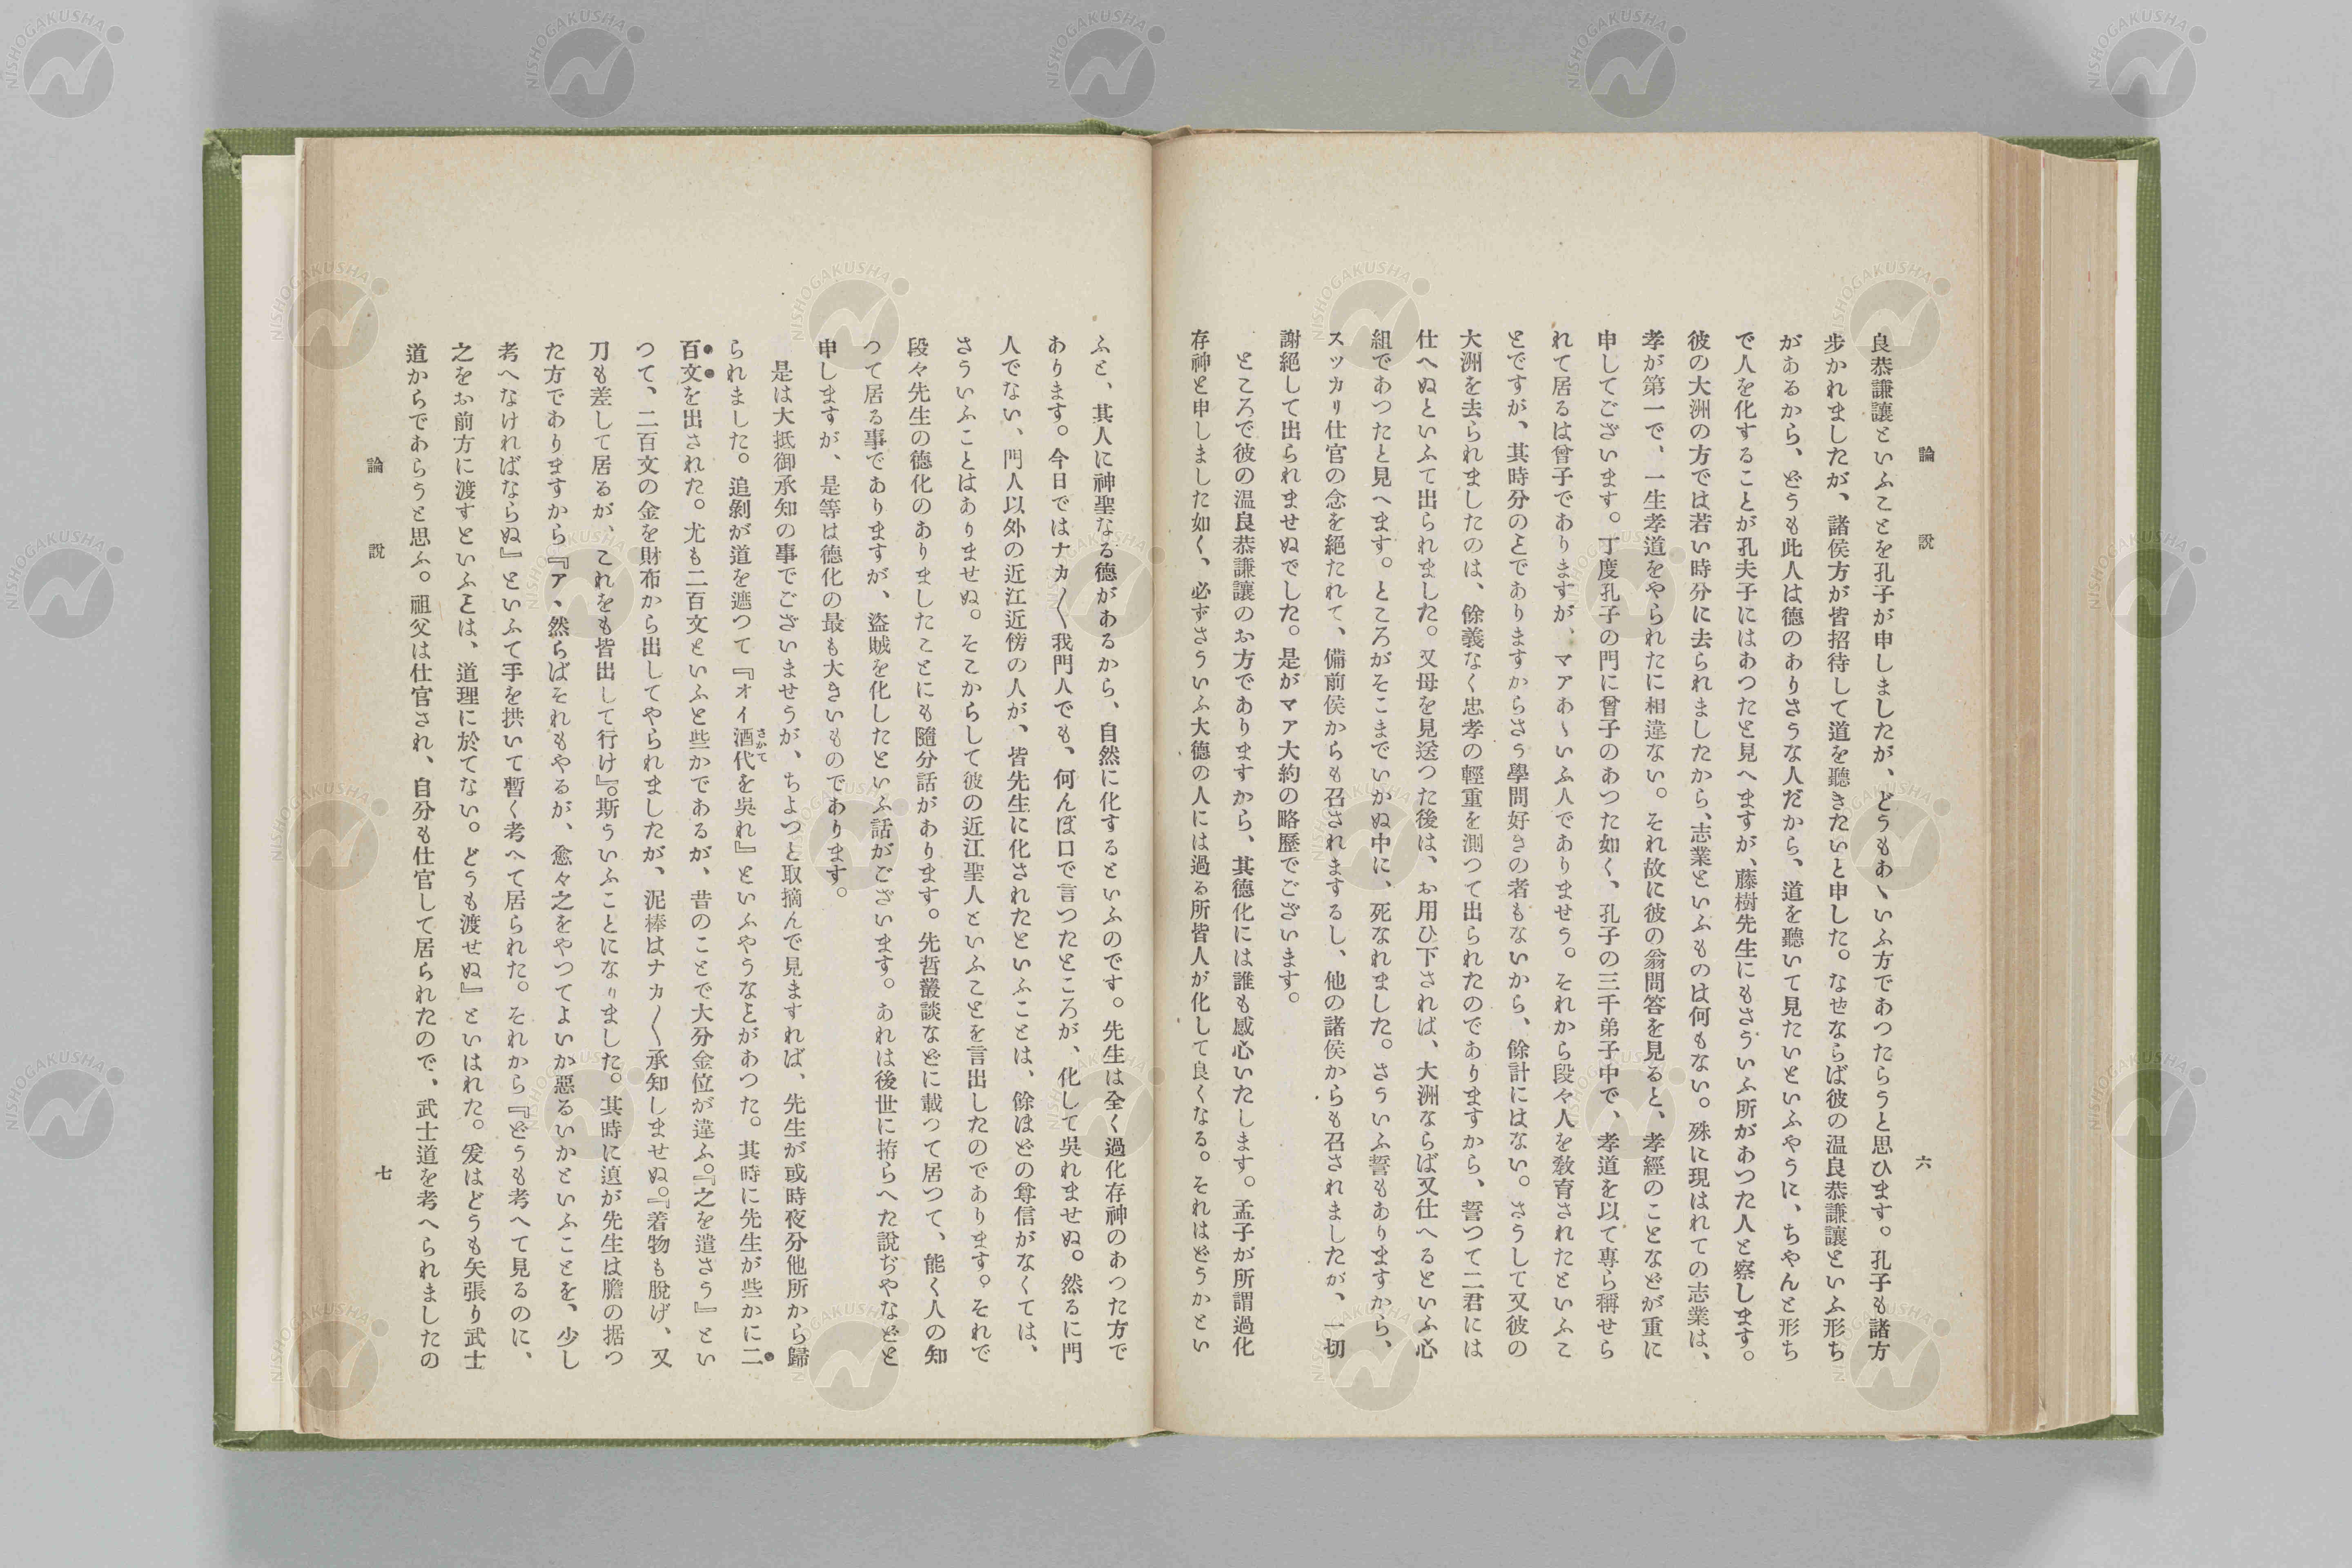 論說
六
良恭謙讓といふことを孔子が申しましたが、どうもあゝいふ方であつたらうと思ひます。孔子も諸方
步かれましたが、諸侯方が皆招待して道を聽きたいと申した。なせならば彼の温良恭謙讓といふ形ち
があるから、どうも此人は德のありさうな人だから、道を聽いて見たいといふやうに、ちやんと形ち
で人を化することが孔夫子にはあつたと見へますが、藤樹先生にもさういふ所があつた人と察します。
彼の大洲の方では若い時分に去られましたから、志業といふものは何もない。殊に現はれての志業は、
孝が第一で、一生孝道をやられたに相違ない。それ故に彼の翁問答を見ると、孝經のことなどが重に
申してございます。丁度孔子の門に曾子のあつた如く、孔子の三千弟子中で、孝道を以て專ら稱せら
れて居るは曾子でありますが、マアあゝいふ人でありませう。それから段々人を教育されたといふこ
とですが、其時分のとでありますからさう學問好きの者もないから、餘計にはない。さうして又彼の
大洲を去られましたのは、餘義なく忠孝の輕重を測つて出られたのでありますから、誓つて二君には
仕へぬといふて出られました。又母を見送つた後は、お用ひ下されば、大洲ならば又仕へるといふ心
組であつたと見へます。ところがそこまでいかぬ中に、死なれました。さういふ誓もありますから、
スッカリ仕官の念を絕たれて、備前侯からも召されまするし、他の諸侯からも召されましたが、一切
謝絕して出られませぬでした。是がマア大約の略歷でございます。
ところで彼の温良恭謙讓のお方でありますから、其德化には誰も感心いたします。孟子が所謂過化
存神と申しました如く、必ずさういふ大德の人には過る所皆人が化して良くなる。それはどうかとい
ふと、其人に神聖なる德があるから、自然に化するといふのです。先生は全く過化存神のあつた方で
あります。今日ではナカ〱我門人でも、何んぼ口で言つたところが、化して吳れませぬ。然るに門
人でない、門人以外の近江近傍の人が、皆先生に化されたといふことは、餘ほどの尊信がなくては、
さういふことはありませぬ。そこからして彼の近江聖人といふことを言出したのであります。それで
段々先生の德化のありましたことにも隨分話があります。先哲叢談などに載つて居つて、能く人の知
つて居る事でありますが、盜賊を化したといふ話がございます。あれは後世に拵らへた說ぢやなどと
申しますが、是等は德化の最も大きいものであります。
是は大抵御承知の事でございませうが、ちよつと取摘んで見ますれば、先生が或時夜分他所から歸
られました。追剝が道を遮つて『オイ酒代を吳れ』といふやうなとがあつた。其時に先生が些かに二
さかて
百文を出された。尤も二百文といふと些かであるが、昔のことで大分金位が違ふ。『之を遣さう』とい
つて、二百文の金を財布から出してやられましたが、泥棒はナカ〱承知しませぬ。『着物も脫げ、又
刀も差して居るが、これをも皆出して行け』。斯ういふことになりました。其時に這が先生は膽の据つ
た方でありますから『アヽ然らばそれもやるが、愈々之をやつてよいか惡るいかといふことを、少し
考へなければならぬ』といふて手を拱いて暫く考へて居られた。それから『どうも考へて見るのに、
之をお前方に渡すといふとは、道理に於てない。どうも渡せぬ』といはれた。爰はどうも矢張り武士
道からであらうと思ふ。祖父は仕官され、自分も仕官して居られたので、武士道を考へられましたの
論說
七
NISHOGAKUSHA